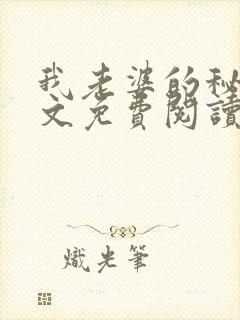 我老婆的秘
文免費閱讀
熾光筆